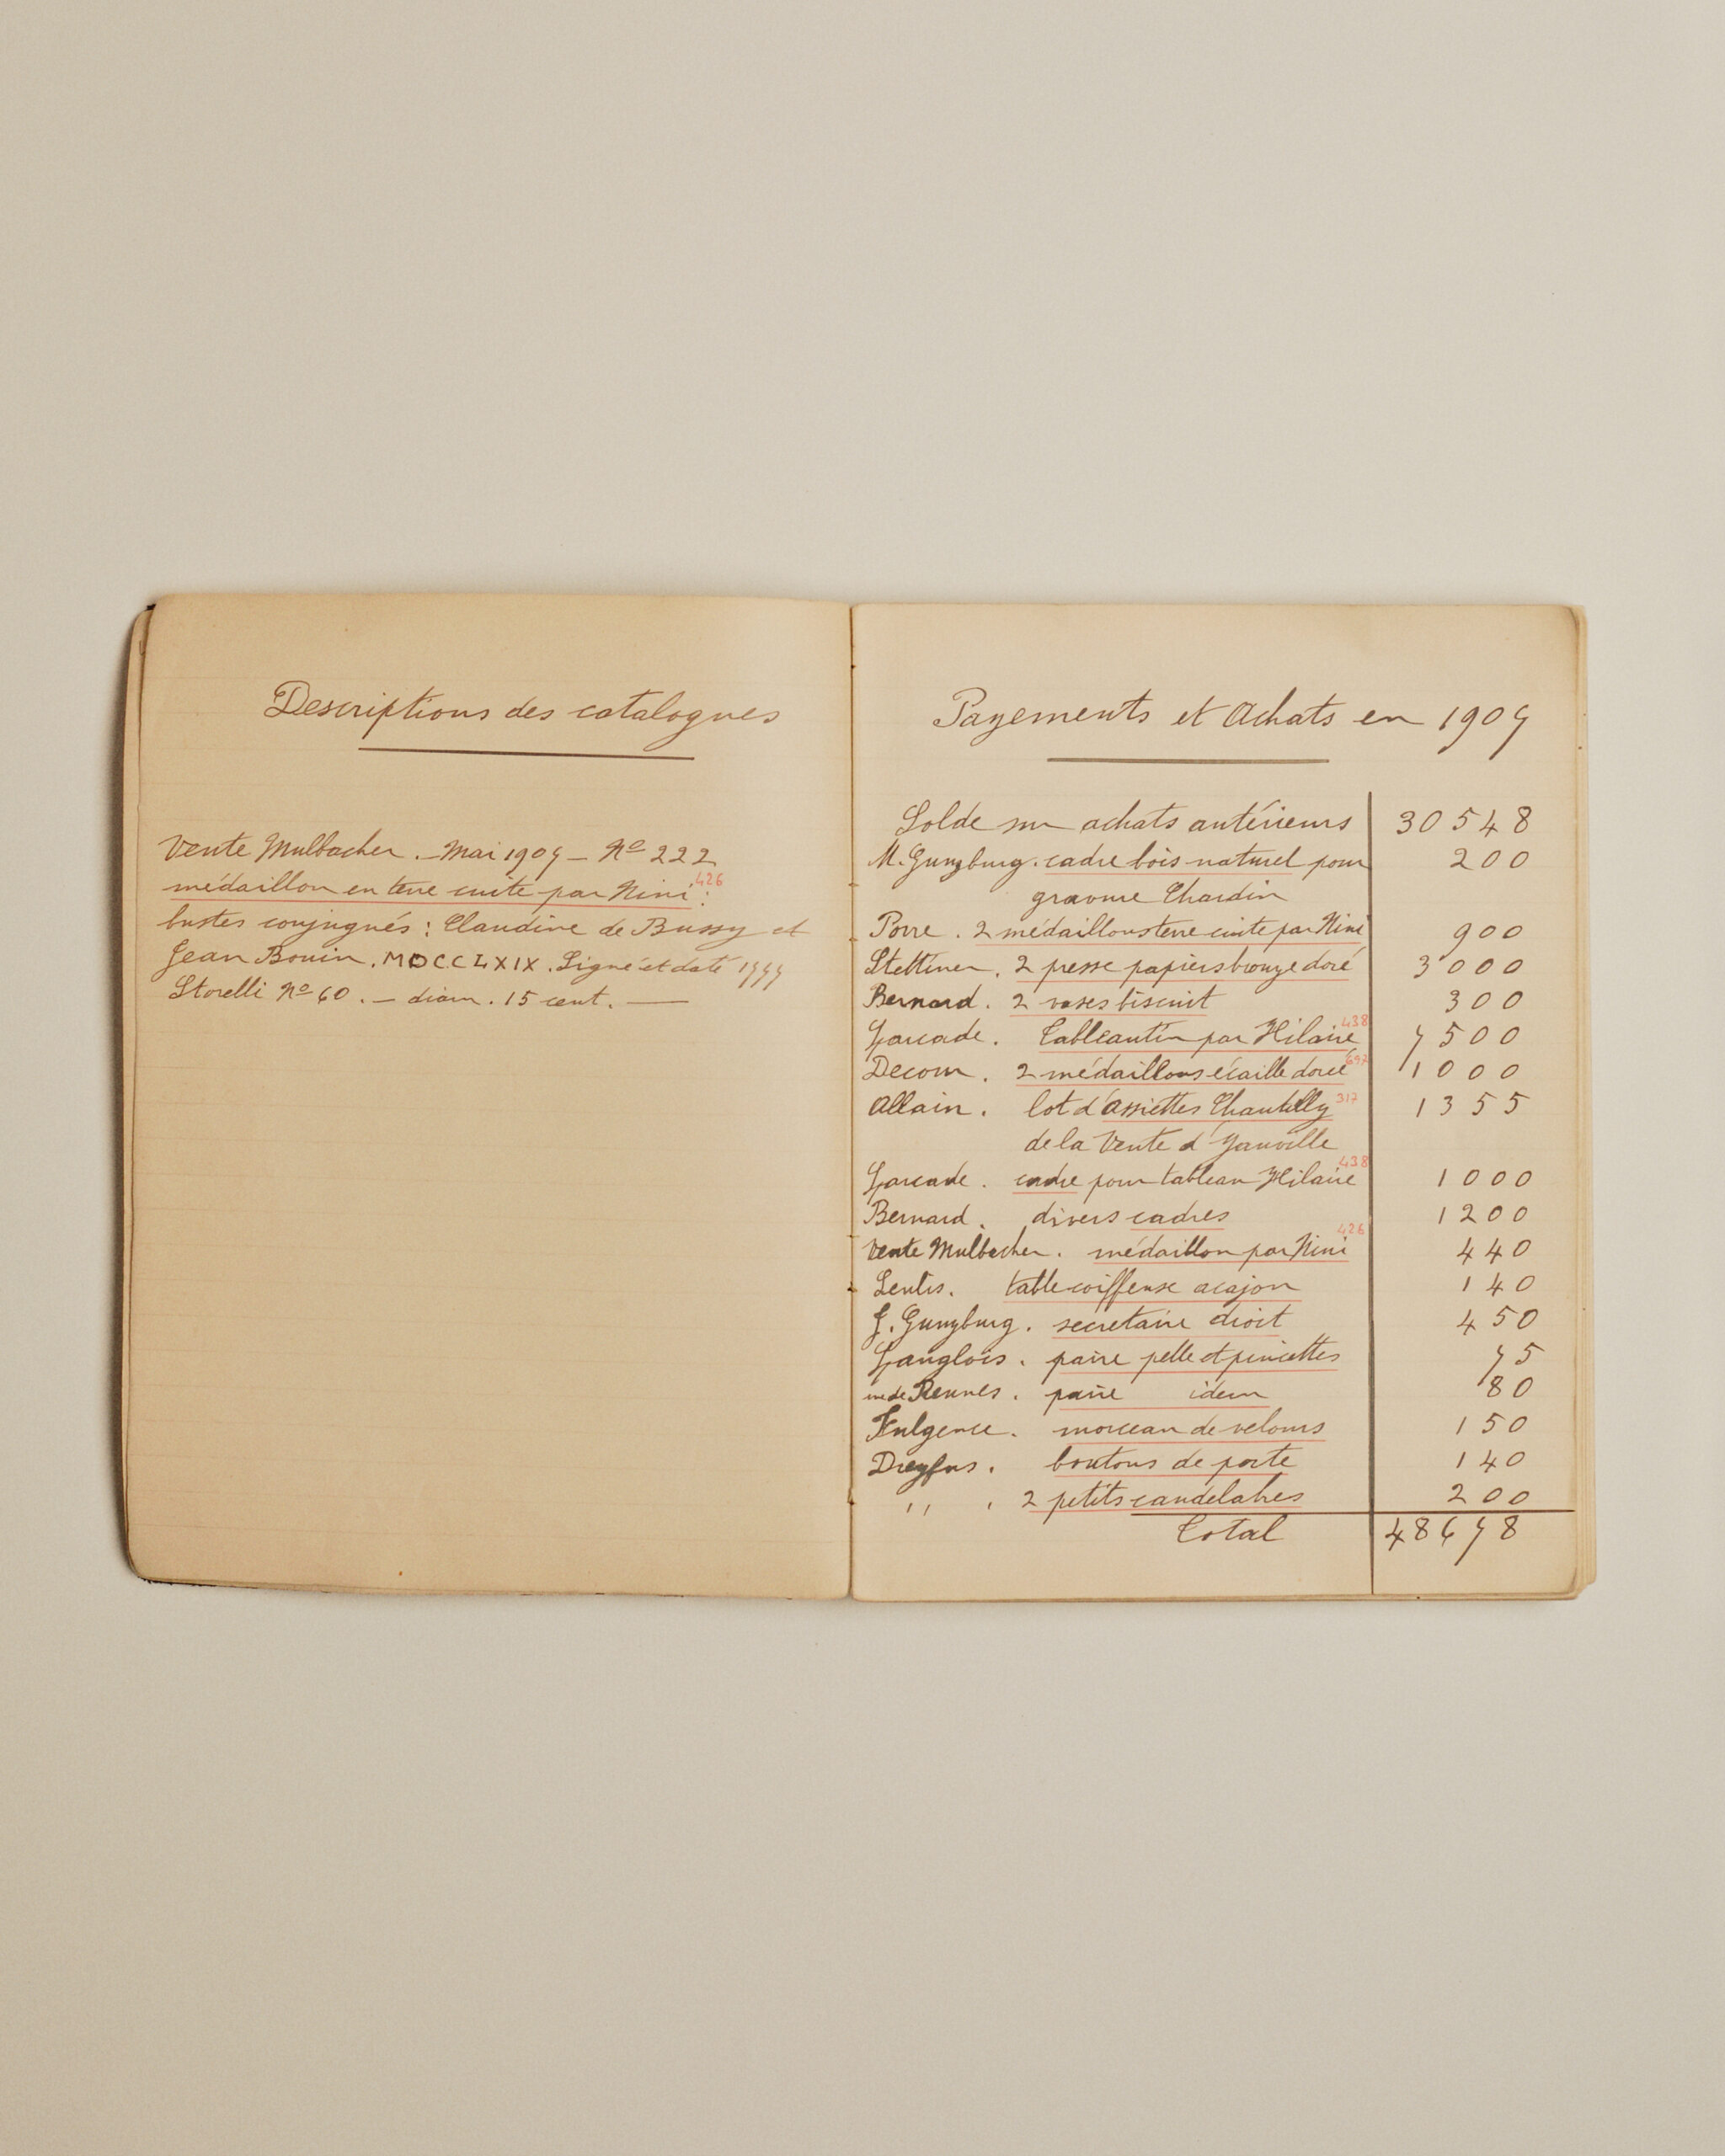 Descriptions des catalogues
Vente Mulbacher. — Mai 1907 — No 222
médaillon en terre cuite par Nini : 426
bustes conjugués : Claudine de Bussy et
Jean Bouin. MDCCLXIX. Signé et daté 1777
Storelli No 60. — diam. 15 cent. —
Payements et Achats en 1907
Solde sur achats antérieurs 30548
M. Gunzburg. cadre bois naturel pour 200
gravure Chardin
Porre. 2 médaillons terre cuite par Nini 900
Stettiner. 2 presse papiers bronze doré 3000
Bernard. 2 vases biscuit 300
Larcade. Tableautin par Hilaire 438 7500
Decour. 2 médaillons écaille dorée 697 1000
Allain. lot d'assiettes Chantilly 317 1355
de la Vente d'Yanville
Larcade. cadre pour tableau Hilaire 438 1000
Bernard. divers cadres 1200
Vente Mulbacher. médaillon par Nini 426 440
table coiffeuse acajou 140
J. Gunzburg. secretaire droit 450
Langlois. paire pelle et pincettes 75
rue de Rennes. paire idem 80
Fulgence. morceau de velours 150
Dreyfus. boutons de porte 140
,, . 2 petits candelabres 200
Total 48678